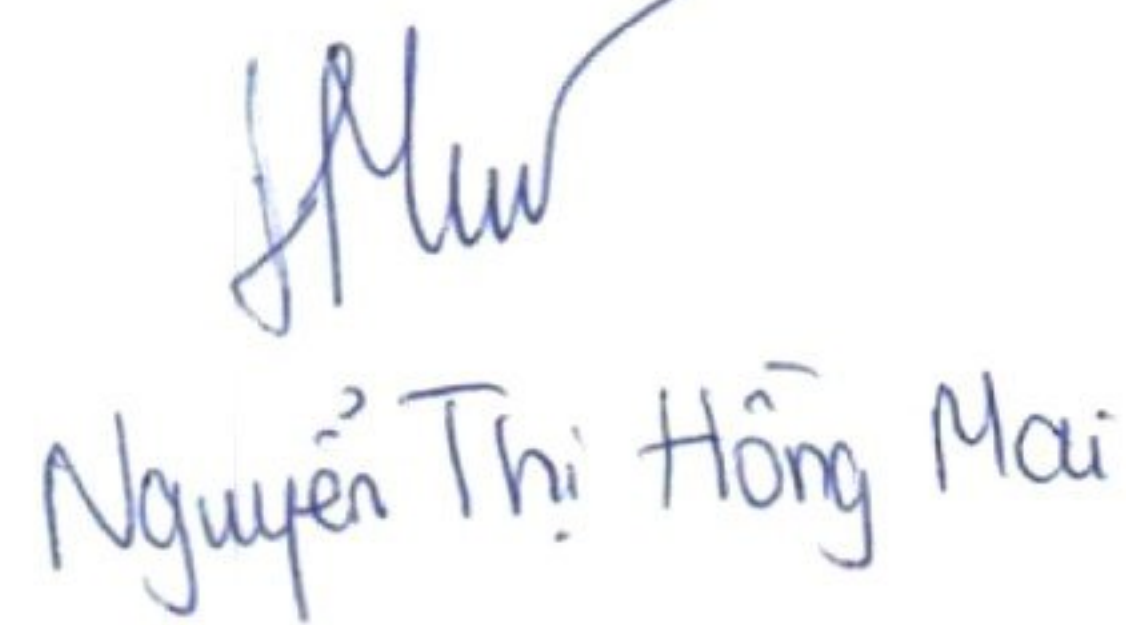 Nguyễn Thị Hồng Mai